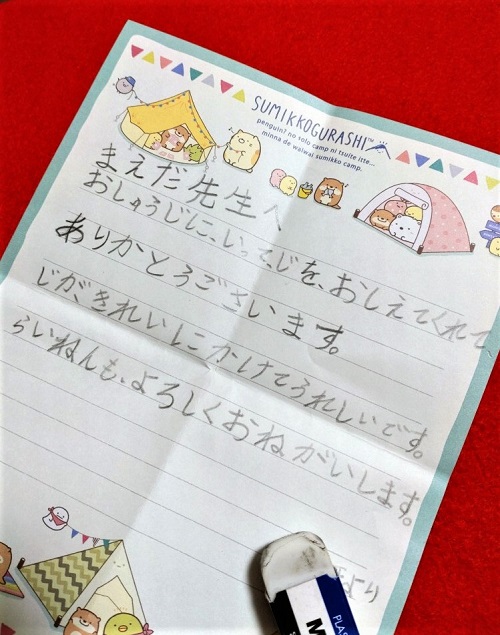 SUMIKKOGURASHI™
penguin? no solo camp ni tsuite itte...
minna de waiwai sumikko camp.
まえだ先生へ
おしゅうじに、いって、じを、おしえてくれて
ありがとうございます。
じが、きれいにかけてうれしいです。
らいねんも、よろしくおねがいします。
より
PLAS
M